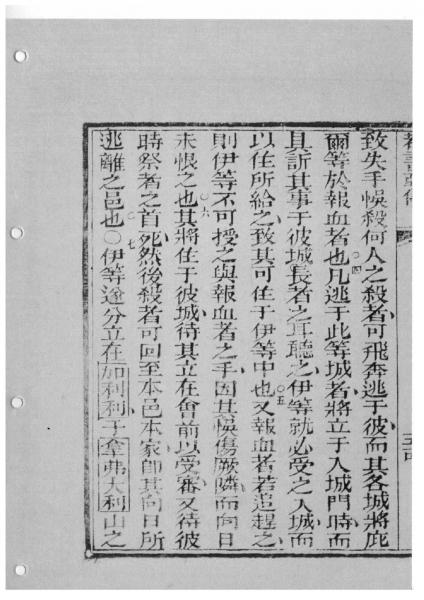 致失手悞殺何人之殺者可飛奔逃于彼而其各城將庇
爾等於報血者也○四凡逃于此等城者將立于入城門時而
具訴其事于彼城長者之耳聽之伊等就必受之入城而
以住所給之致其可住于伊等中也○五又報血者若追趕之
則伊等不可授之與報血者之手因其悞傷厥隣而向日
未恨之也○六其將住于彼城待其立在會前以受審又待彼
時祭者之首死○七然後殺者可回至本邑本家即其向日所
逃離之邑也○伊等遂分立在加利利于拿弗大利山之